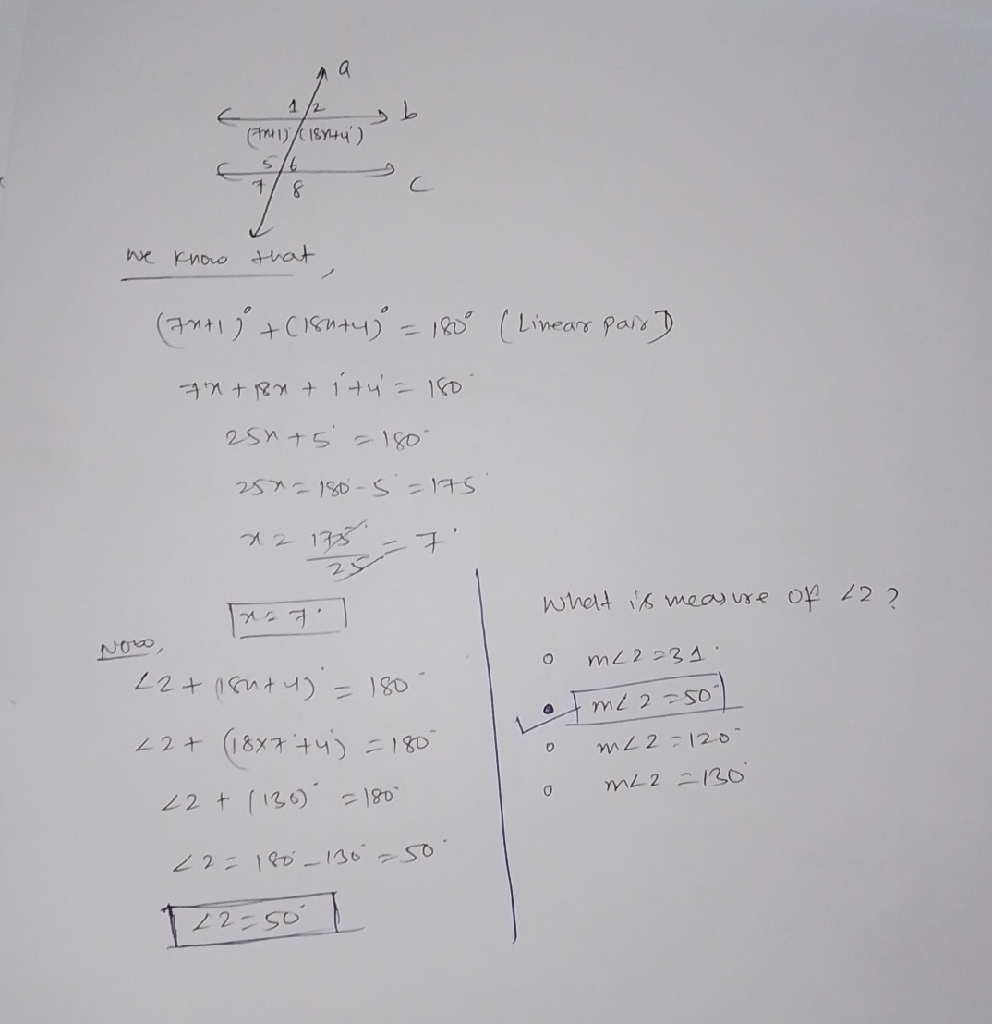 a
1 2
b
(7x+1)° (18x+4°)
5 6
7 8
c
we know that,
(7x+1)° + (18x+4)° = 180° (Linear pair)
7x + 18x + 1° + 4° = 180°
25x + 5° = 180°
25x = 180° - 5° = 175°
x = 175° / 25 = 7°
x = 7°
Now,
∠2 + (18x+4)° = 180°
∠2 + (18×7°+4°) = 180°
∠2 + (130)° = 180°
∠2 = 180° - 130° = 50°
∠2 = 50°
What is measure of ∠2 ?
m∠2 = 31°
m∠2 = 50°
m∠2 = 120°
m∠2 = 130°